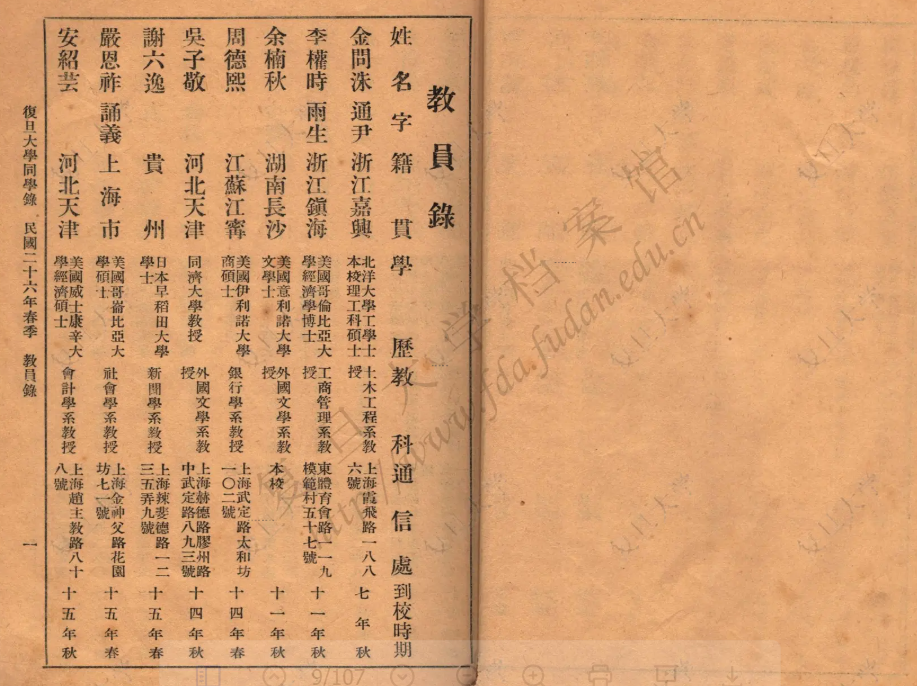 教員錄
姓名 字 籍貫 學歷 教科 通信處 到校時期
金問洙 通尹 浙江嘉興 北洋大學工學士本校理工科碩士 土木工程系教授 上海霞飛路一八八六號 七年秋
李權時 雨生 浙江鎮海 美國哥倫比亞大學經濟學博士 工商管理系教授 東體育會路一一九模範村五十七號 十一年秋
余楠秋 湖南長沙 美國意利諾大學文學士 外國文學系教授 本校 十一年秋
周德熙 江蘇江寗 美國伊利諾大學商碩士 銀行學系教授 上海武定路太和坊一〇二號 十四年春
吳子敬 河北天津 同濟大學教授 外國文學系教授 上海赫德路膠州路中武定路八九三號 十四年秋
謝六逸 貴州 日本早稻田大學學士 新聞學系教授 上海辣斐德路一二三五弄九號 十五年春
嚴恩祚 誦義 上海市 美國哥崙比亞大學碩士 社會學系教授 上海金神父路花園坊七一號 十五年春
安紹芸 河北天津 美國威士康辛大學經濟碩士 會計學系教授 上海趙主教路八十八號 十五年秋
復旦大學同學錄 民國二十六年春季 教員錄 一
复旦大学档案馆
http://www.fda.fudan.edu.cn
9/107